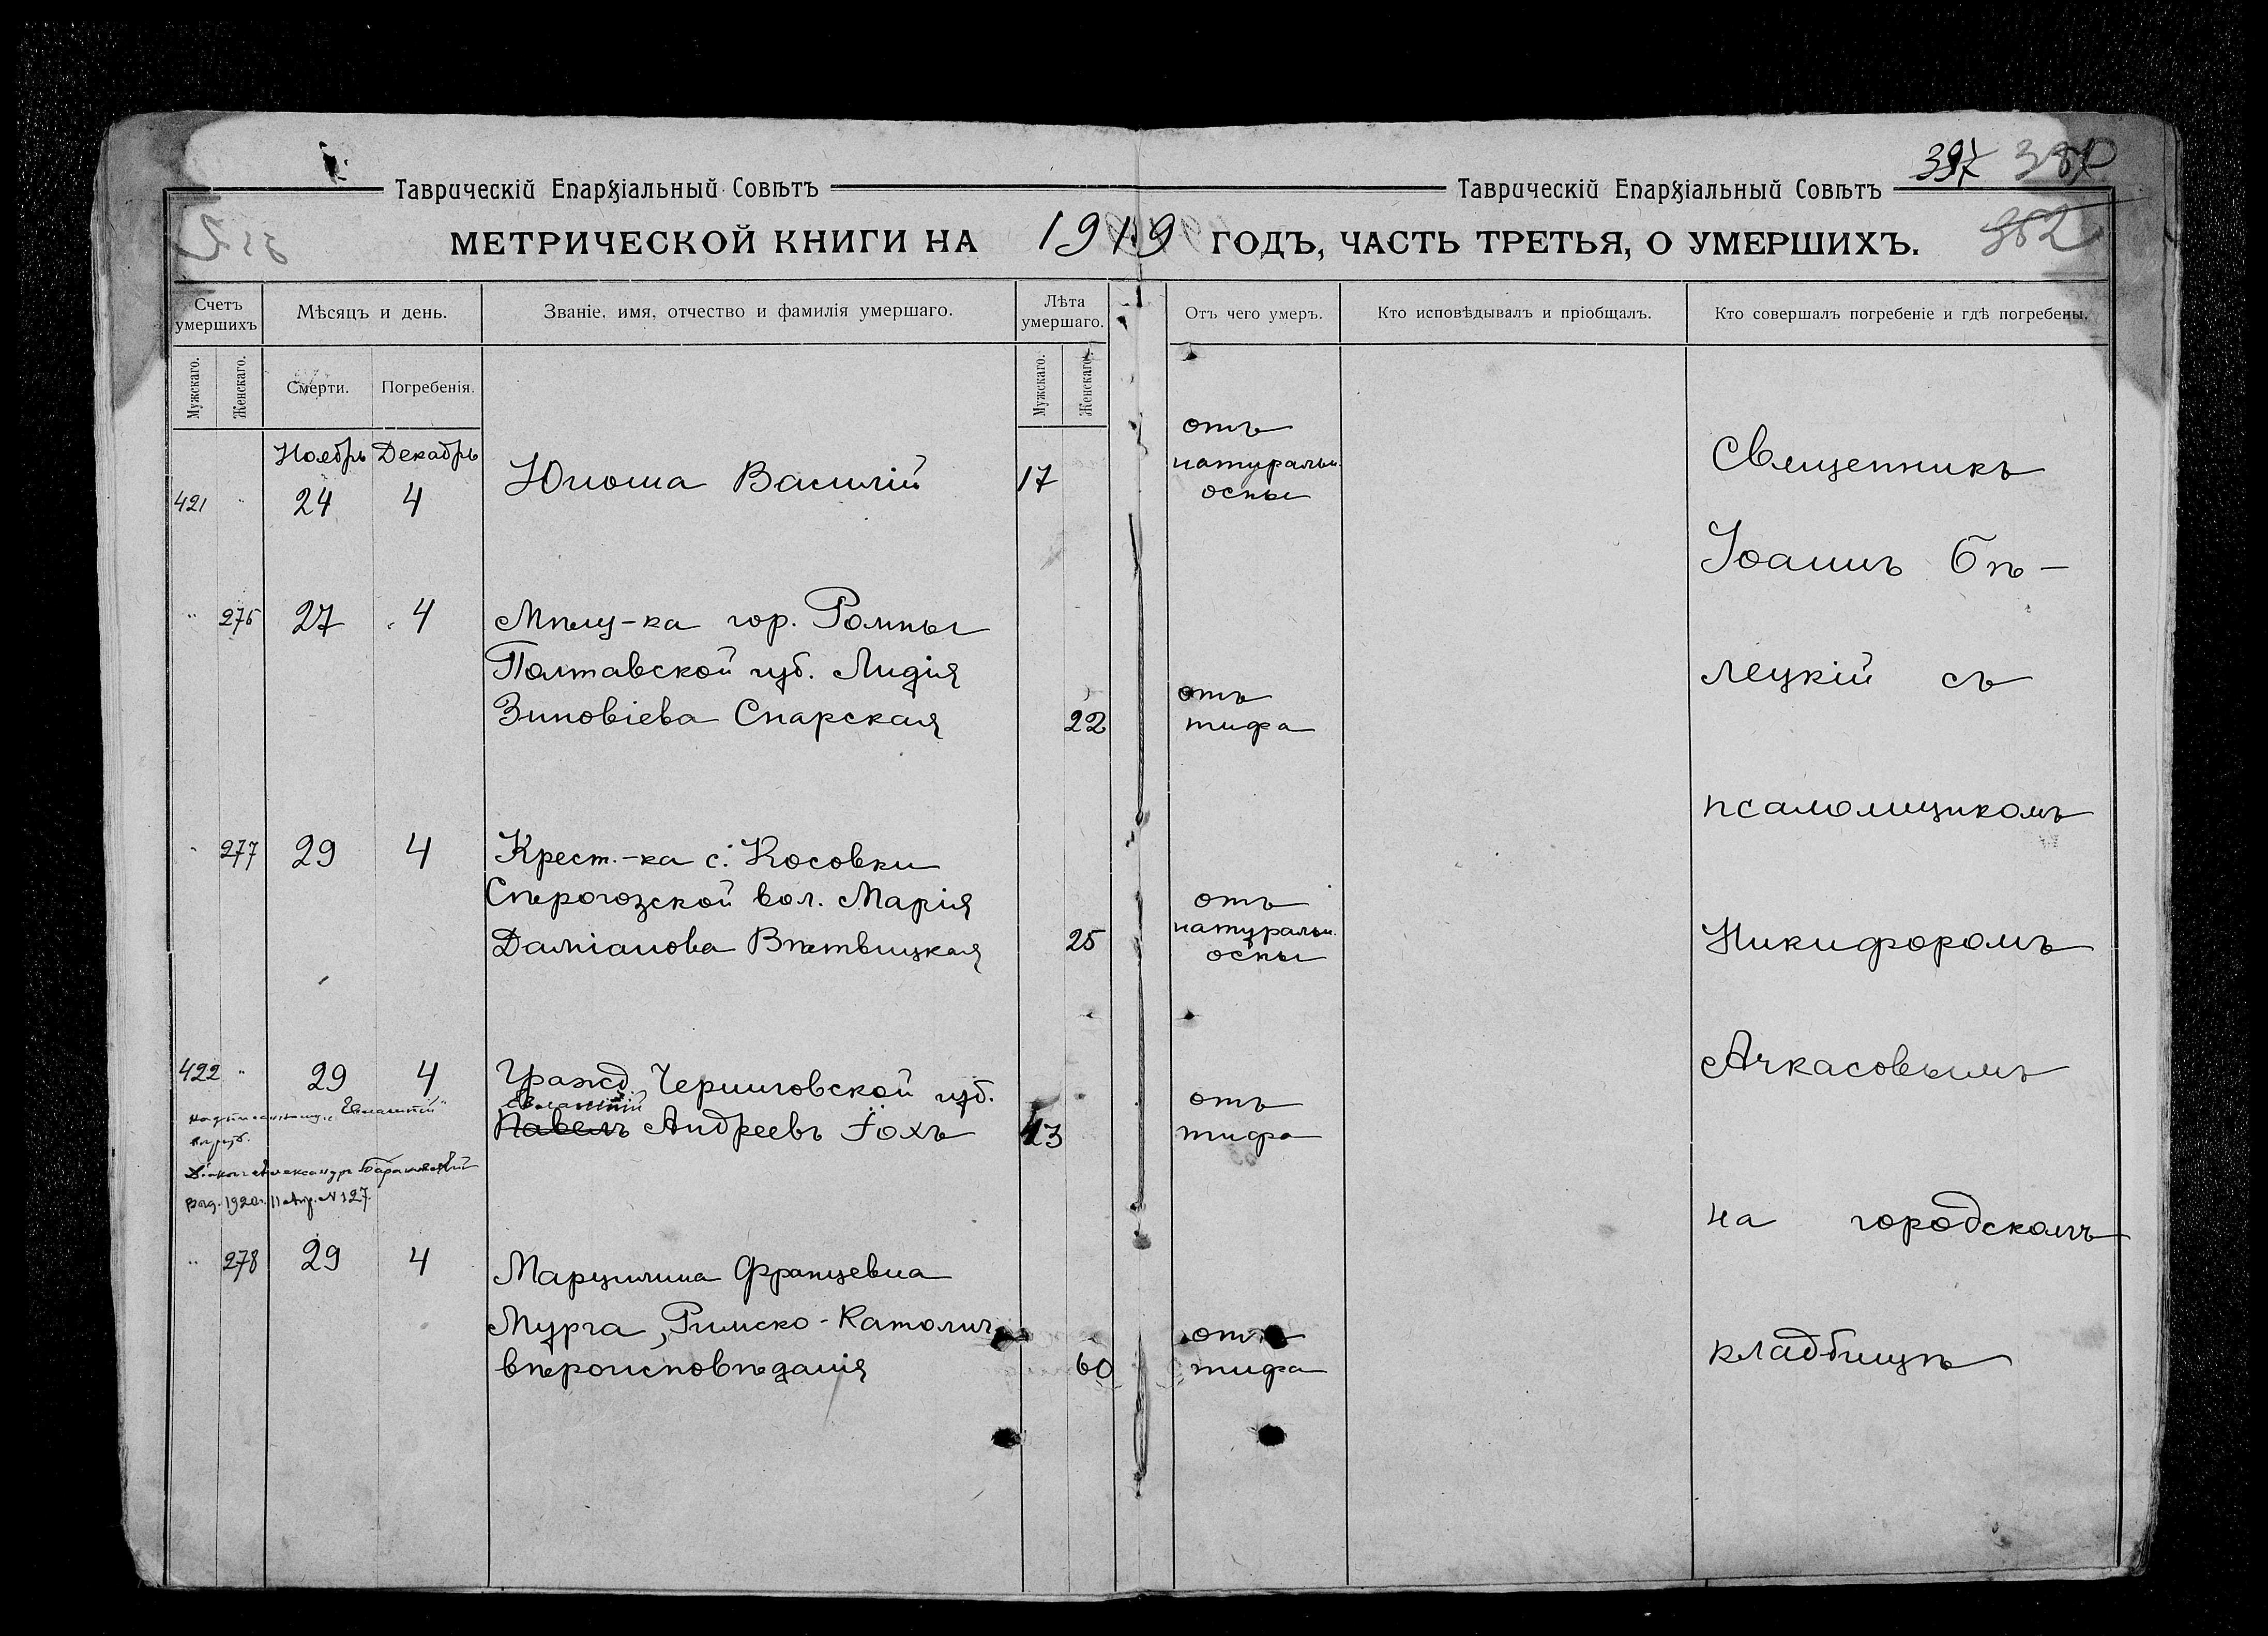 397 380
Таврическій Епархіальный Совѣтъ
Таврическій Епархіальный Совѣтъ
362
МЕТРИЧЕСКОЙ КНИГИ НА 1919 ГОДЪ, ЧАСТЬ ТРЕТЬЯ, О УМЕРШИХЪ.
Счетъ умершихъ
Мѣсяцъ и день.
Званіе, имя, отчество и фамилія умершаго.
Лѣта умершаго.
Отъ чего умеръ.
Кто исповѣдывалъ и пріобщалъ.
Кто совершалъ погребеніе и гдѣ погребены.
Мужскаго.
Женскаго.
Смерти.
Погребенія.
Мужскаго.
Женскаго.
Ноябрь Декабрь
421 " 24 4 Юноша Василій 17
отъ
натуральн.
оспы
" 276 27 4 Мѣщ-ка гор. Ромны
Полтавской губ. Лидія
Зиновіева Снарская 22
отъ
тифа
" 277 29 4 Крест.-ка с. Косовки
Сѣрогозской вол. Марія
Даміанова Вѣтвицкая 25
отъ
натуральн.
оспы
422 " 29 4 Гражд. Черниговской губ.
Евлампій
Павелъ Андреевъ Гохъ 43
отъ
тифа
Надписанному „Евлампій"
вѣрить.
Діаконъ Александръ Барановскій
Выд. 1920 г. 11 Апр. N 127.
" 278 29 4 Марцилина Францевна
Мурга, Римско-Католич.
вѣроисповѣданія 60
отъ
тифа
Священникъ
Іоаннъ Бѣ-
лецкій съ
псаломщикомъ
Никифоромъ
Ачкасовымъ
на городскомъ
кладбищѣ